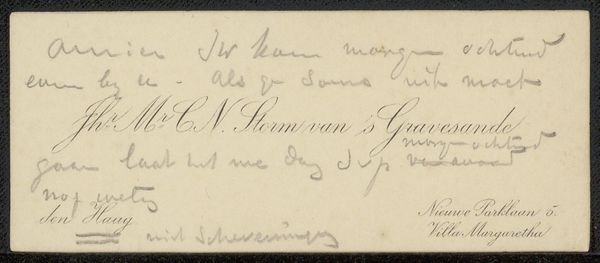 Amice Ik kom morgen ochtend
even by u - Als ge soms uit moet
Jhr. Mr. C.N. Storm van 's Gravesande
morgen ochtend
gaan laat het me dan
nog weten
den Haag
niet Scheveningen
Nieuwe Parklaan 5.
Villa Margaretha